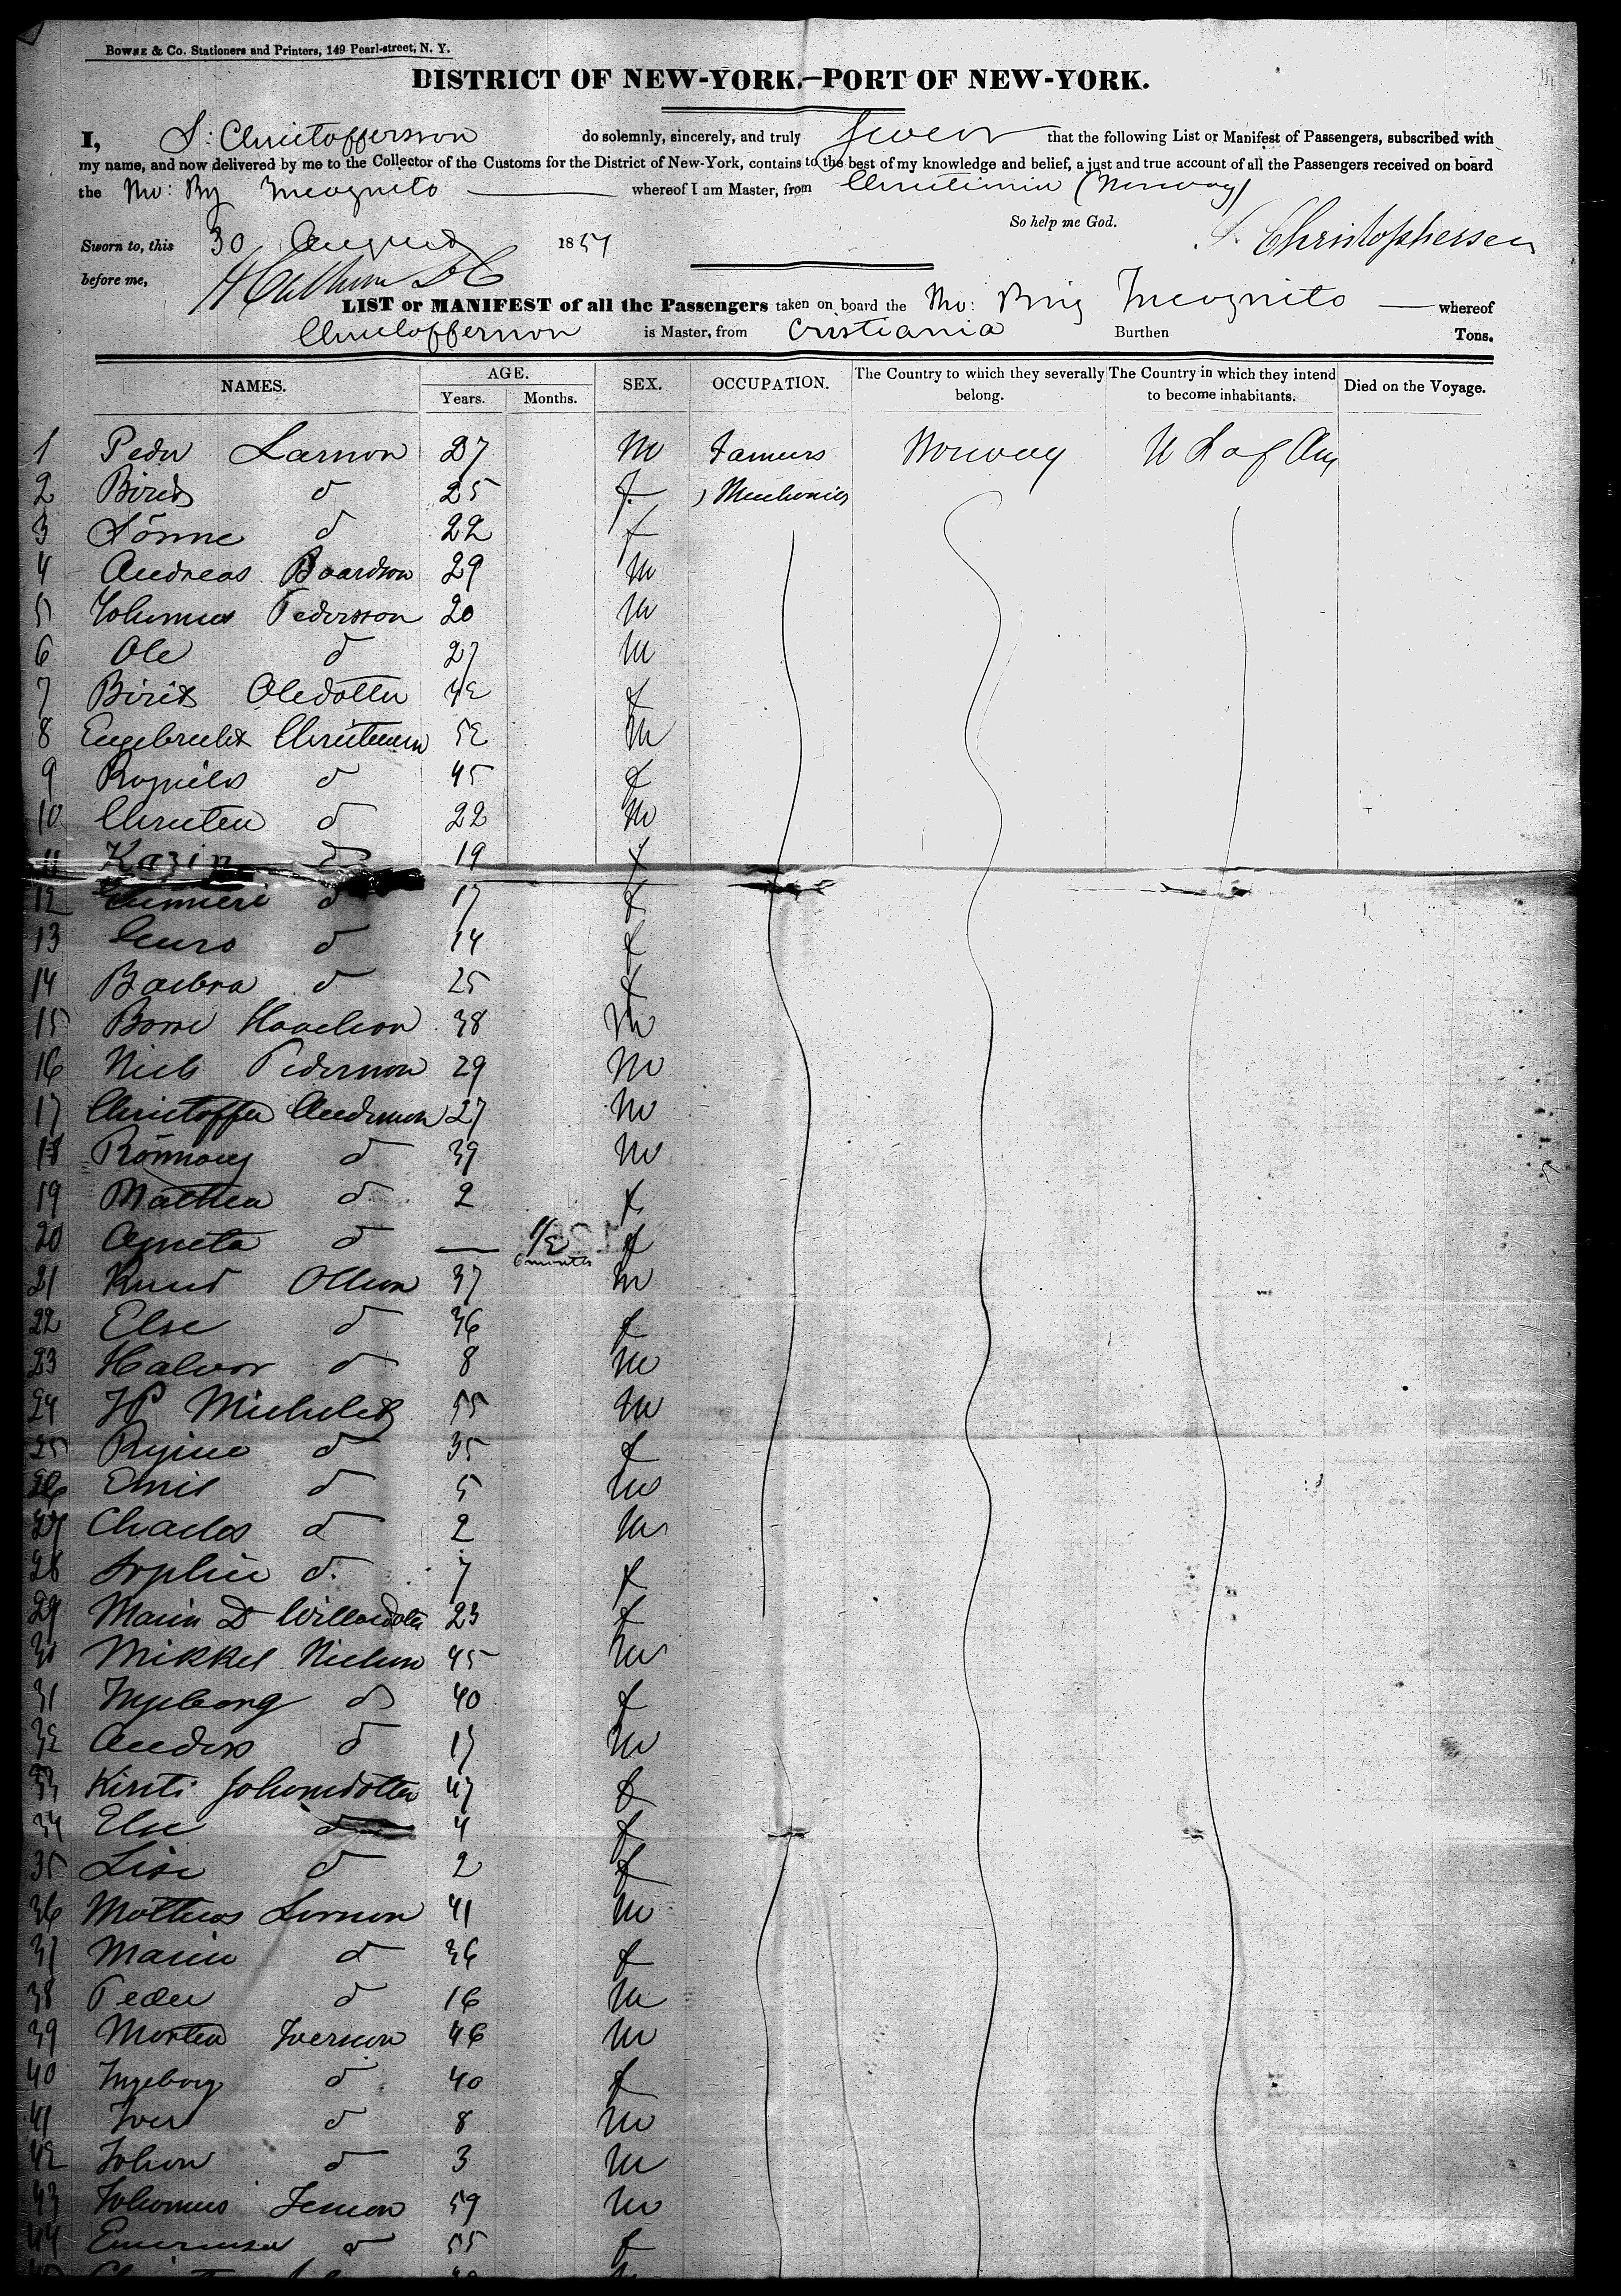 BOWNE & Co. Stationers and Printers, 149 Pearl-street, N. Y.
DISTRICT OF NEW-YORK.—PORT OF NEW-YORK.
I, S: Christoffersson do solemnly, sincerely, and truly swear that the following List or Manifest of Passengers, subscribed with
my name, and now delivered by me to the Collector of the Customs for the District of New-York, contains to the best of my knowledge and belief, a just and true account of all the Passengers received on board
the No: Brg Incognito whereof I am Master, from Christiania (Norway)
So help me God.
Sworn to, this 30 August 185 S. Christophersen
before me,
LIST or MANIFEST of all the Passengers taken on board the No: Brig Incognito whereof
Christoffersson is Master, from Cristiania Burthen Tons.
NAMES. AGE. SEX. OCCUPATION. The Country to which they severally belong. The Country in which they intend to become inhabitants. Died on the Voyage.
Years. Months.
1 Peder Larsson 27 m Farmers Norway U S of Am
2 Birit d 25 f. Mechanics
3 Sönne d 22 f
4 Andreas Baardson 29 m
5 Johannes Pedersson 20 m
6 Ole d 27 m
7 Birit Oledotter 42 f
8 Engebrecht Christensen 52 m
9 Ragnild d 45 f
10 Christen d 22 m
11 Kazin d 19 f
12 d 17 f
13 Guro d 14 f
14 Barbra d 25 f
15 38 m
16 Niels Pedersson 29 m
17 Christoffer Andersson 27 m
18 Rönnaug d 39 m
19 Mathea d 2 f
20 Agneta d — 1/2 f
6 months
21 Knud Olsson 37 m
22 Else d 36 f
23 Halvor d 8 m
24 JP Michelet 55 m
25 Regine d 35 f
26 Emil d 5 m
27 Charles d 2 m
28 Sophie d. 7 f
29 Marin D 23 f
30 Mikkel Nielsen 45 m
31 Ingeborg d 40 f
32 Anders d 17 m
33 Kirsti Johansdotter 47 f
34 Else d 4 f
35 Lise d 2 f
36 Mathias Larsson 41 m
37 Marin d 36 f
38 Peder d 16 m
39 Morten Iversson 46 m
40 Ingeborg d 40 f
41 Iver d 8 m
42 Johan d 3 m
43 Johannes Jensson 59 m
44 d 55 f